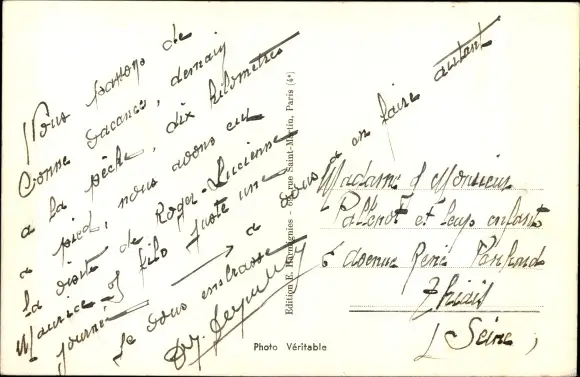 Nous passons de
bonne vacances, demain
a la pêche, dix kilomètres
a pied, nous avons eu
la visite de Roger-Lucienne
Maurice et fils juste une
journée → a vous d en faire autant
Je vous embrasse
Edition E. - rue Saint-Martin, Paris (4e)
Madame & Monsieur
et leurs enfants
6 avenue René Panhard
Thiais
(Seine)
Photo Véritable